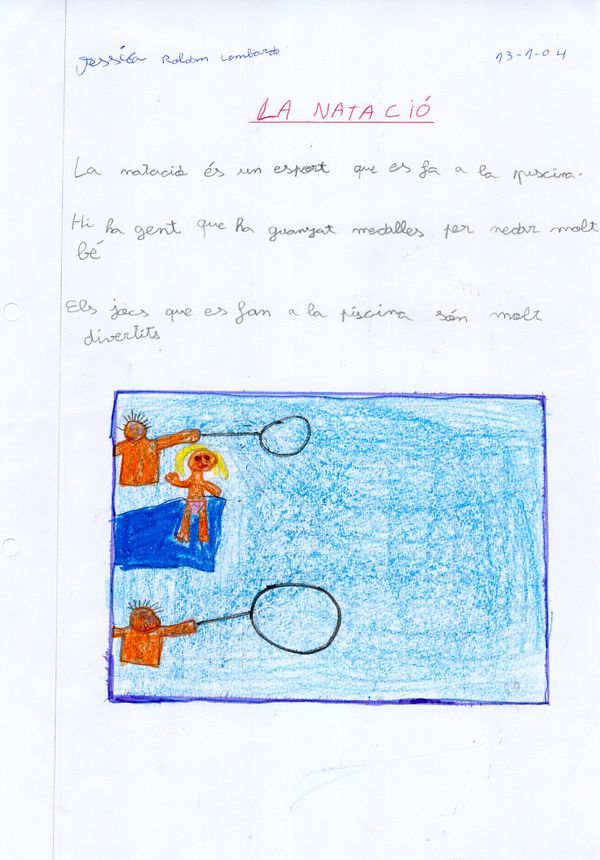 Jessica Roldan Lombardo 13-1-04
LA NATACIÓ
La natació és un esport que es fa a la piscina.
Hi ha gent que ha guanyat medalles per nedar molt
bé
Els jocs que es fan a la piscina són molt
divertits